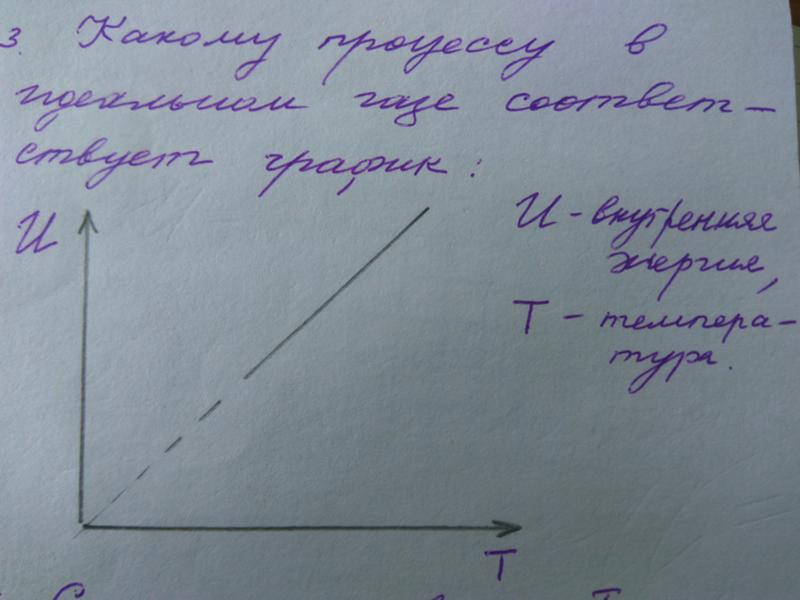 3. Какому процессу в
идеальном газе соответ-
ствует график:
U
U - внутренняя
энергия,
T - темпера-
тура.
T